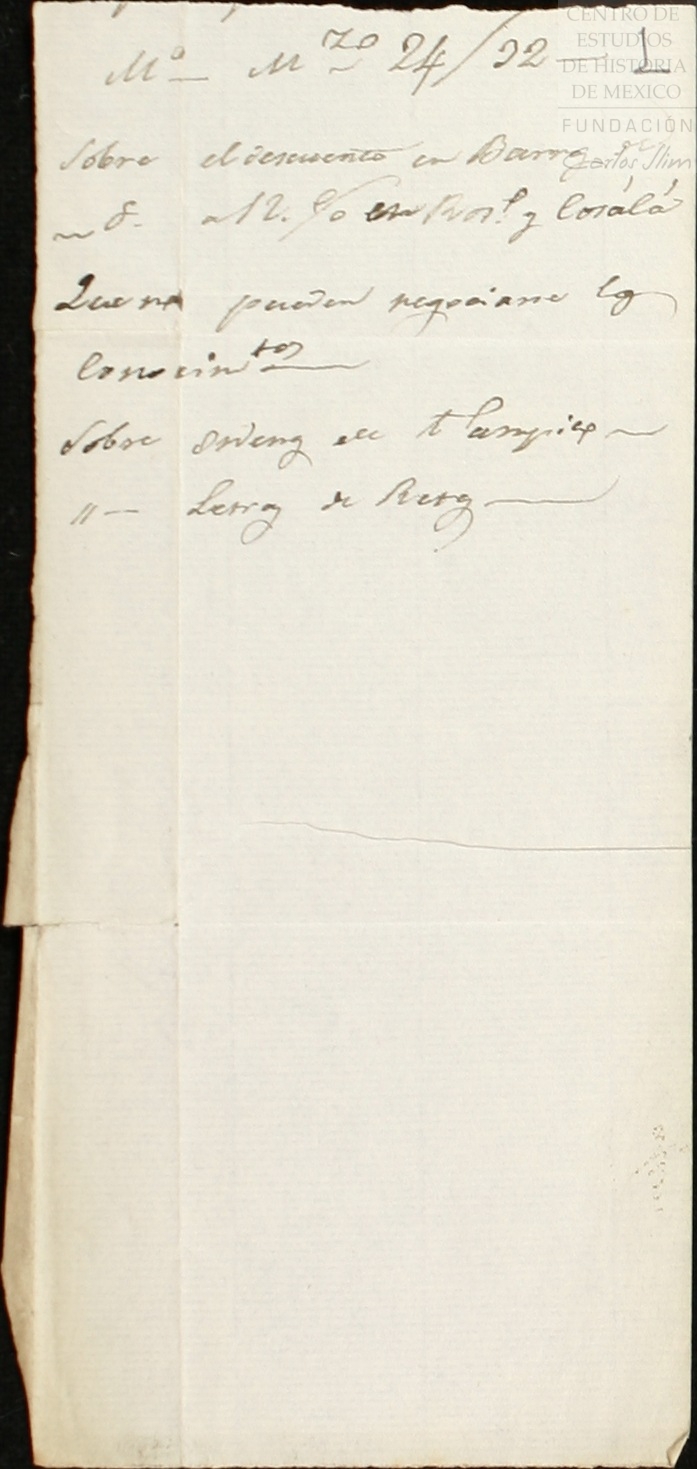 Mº Mzo 24/32 — 1
Sobre el descuento en Barra de
8. a 12. %o en Rosl. y Cosalá
Que no pueden negociarse los
Conocimtos
Sobre ordens de Tampico
„ — Letras de Retg
CENTRO DE
ESTUDIOS
DE HISTORIA
DE MEXICO
FUNDACIÓN
Carlos Slim